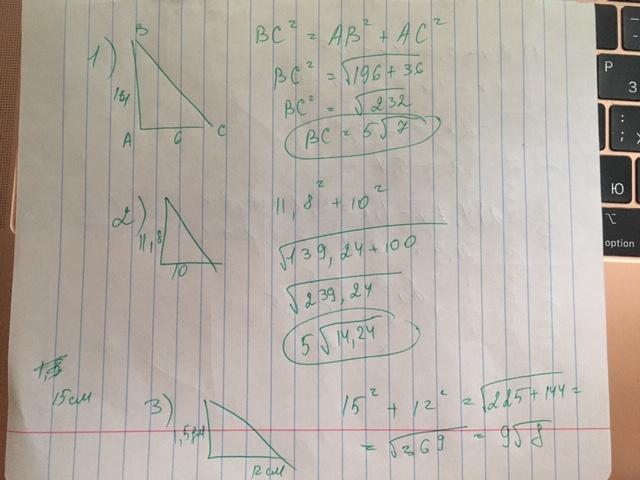 1)
B
14
A
6
C
BC² = AB² + AC²
BC² = √196+36
BC² = √232
BC = 5√7
2)
11,8
10
11,8² + 10²
√139,24+100
√239,24
5√14,24
15см
3)
1,5дм
12см
15² + 12² = √225+144 =
= √369 = 9√8
P
З
Ю
option